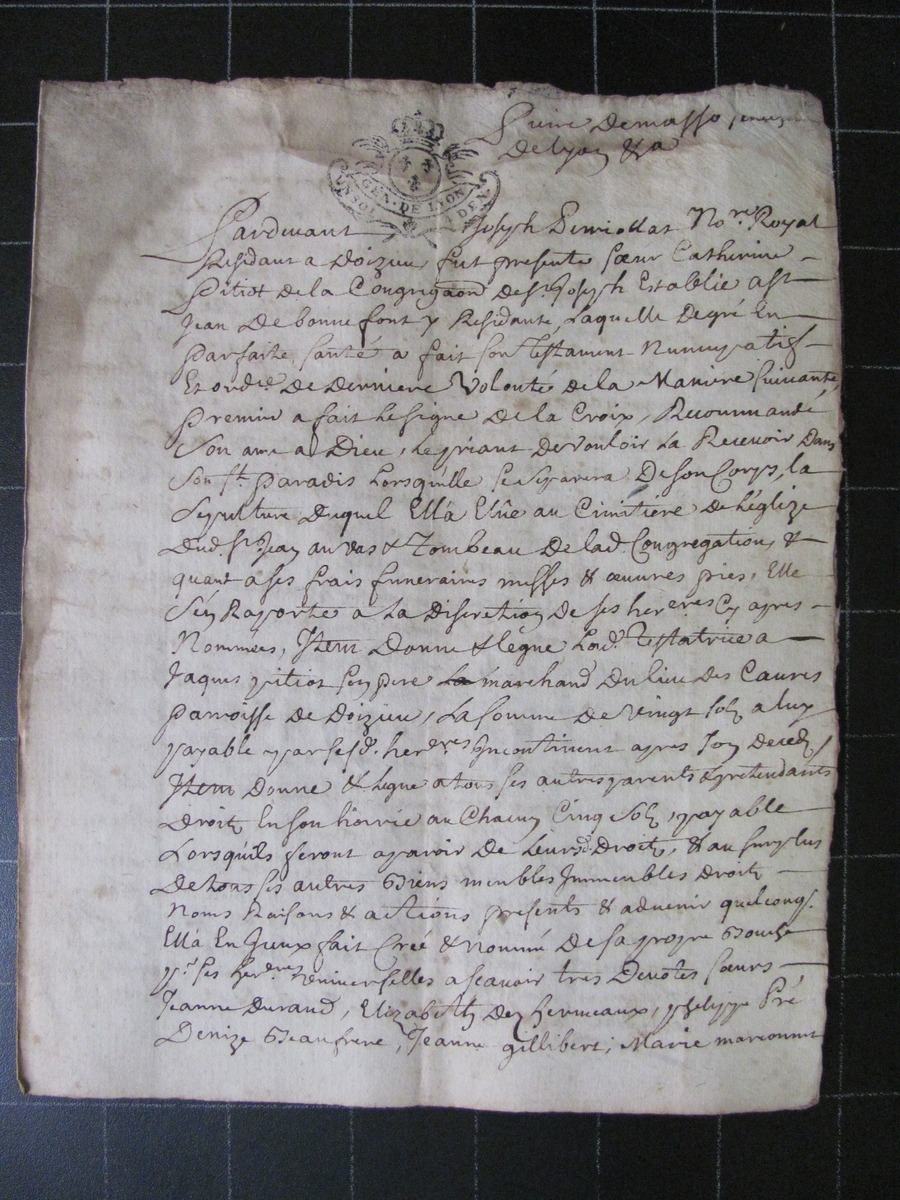 Pierre Demasso senes
de lyon &a
GEN. DE LYON
Pardevant Joseph No.re Royal
Residant a Doizieu, fut presente sœur Catherine
pitiot de la Congrega͠on de s.t Joseph Establie a st
Jean De bonnefont y Residante, laquelle De gré En
parfaite santé a fait son testament Nuncupatif
Et ord.re De Derniere Volonté de la Maniere suivante
premier a fait le signe De la Croix, Recommandé
Son ame a Dieu, le priant De vouloir La Recevoir Dans
son st. paradis Lorsqu'elle se separera De son Corps, la
sepulture Duquel Ell'a Elûe au Cimitiére de L'églize
Dud. st. Jean au vas & Tombeau De lad. Congregation, &
quant a ses frais funeraires messes & œuvres pies, Elle
s'en Raporte a La Discretion De ses her.eres Cy apres
Nommées, Item Donne & legue Lad. Testatrice a
Jaques pitiot son pere marchand Du lieu des Caures
parroisse De Doizieu, La somme De vingt sols a luy
payable par sesd. her.eres incontinent apres son Decés
Item Donne & legue a tous ses autres parents & pretendants
Droits En son hoirie au Chacun Cinq sols, payable
Lorsqu'ils feront aparoir De Leursd. Droits, & au surplus
De tous ses autres Biens meubles Immeubles Droits
Noms Raisons & actions presents & advenir quelconq.
Ell'a En Iceux fait Creé & Nommé De sa propre Bouche
p.r ses her.eres Universelles a scavoir tres Devotes sœurs
Jeanne Durand, Elizabeth Des hermeaux, philippe Pré
Denize Beaufrere, Jeanne gillibert, Marie marconnet